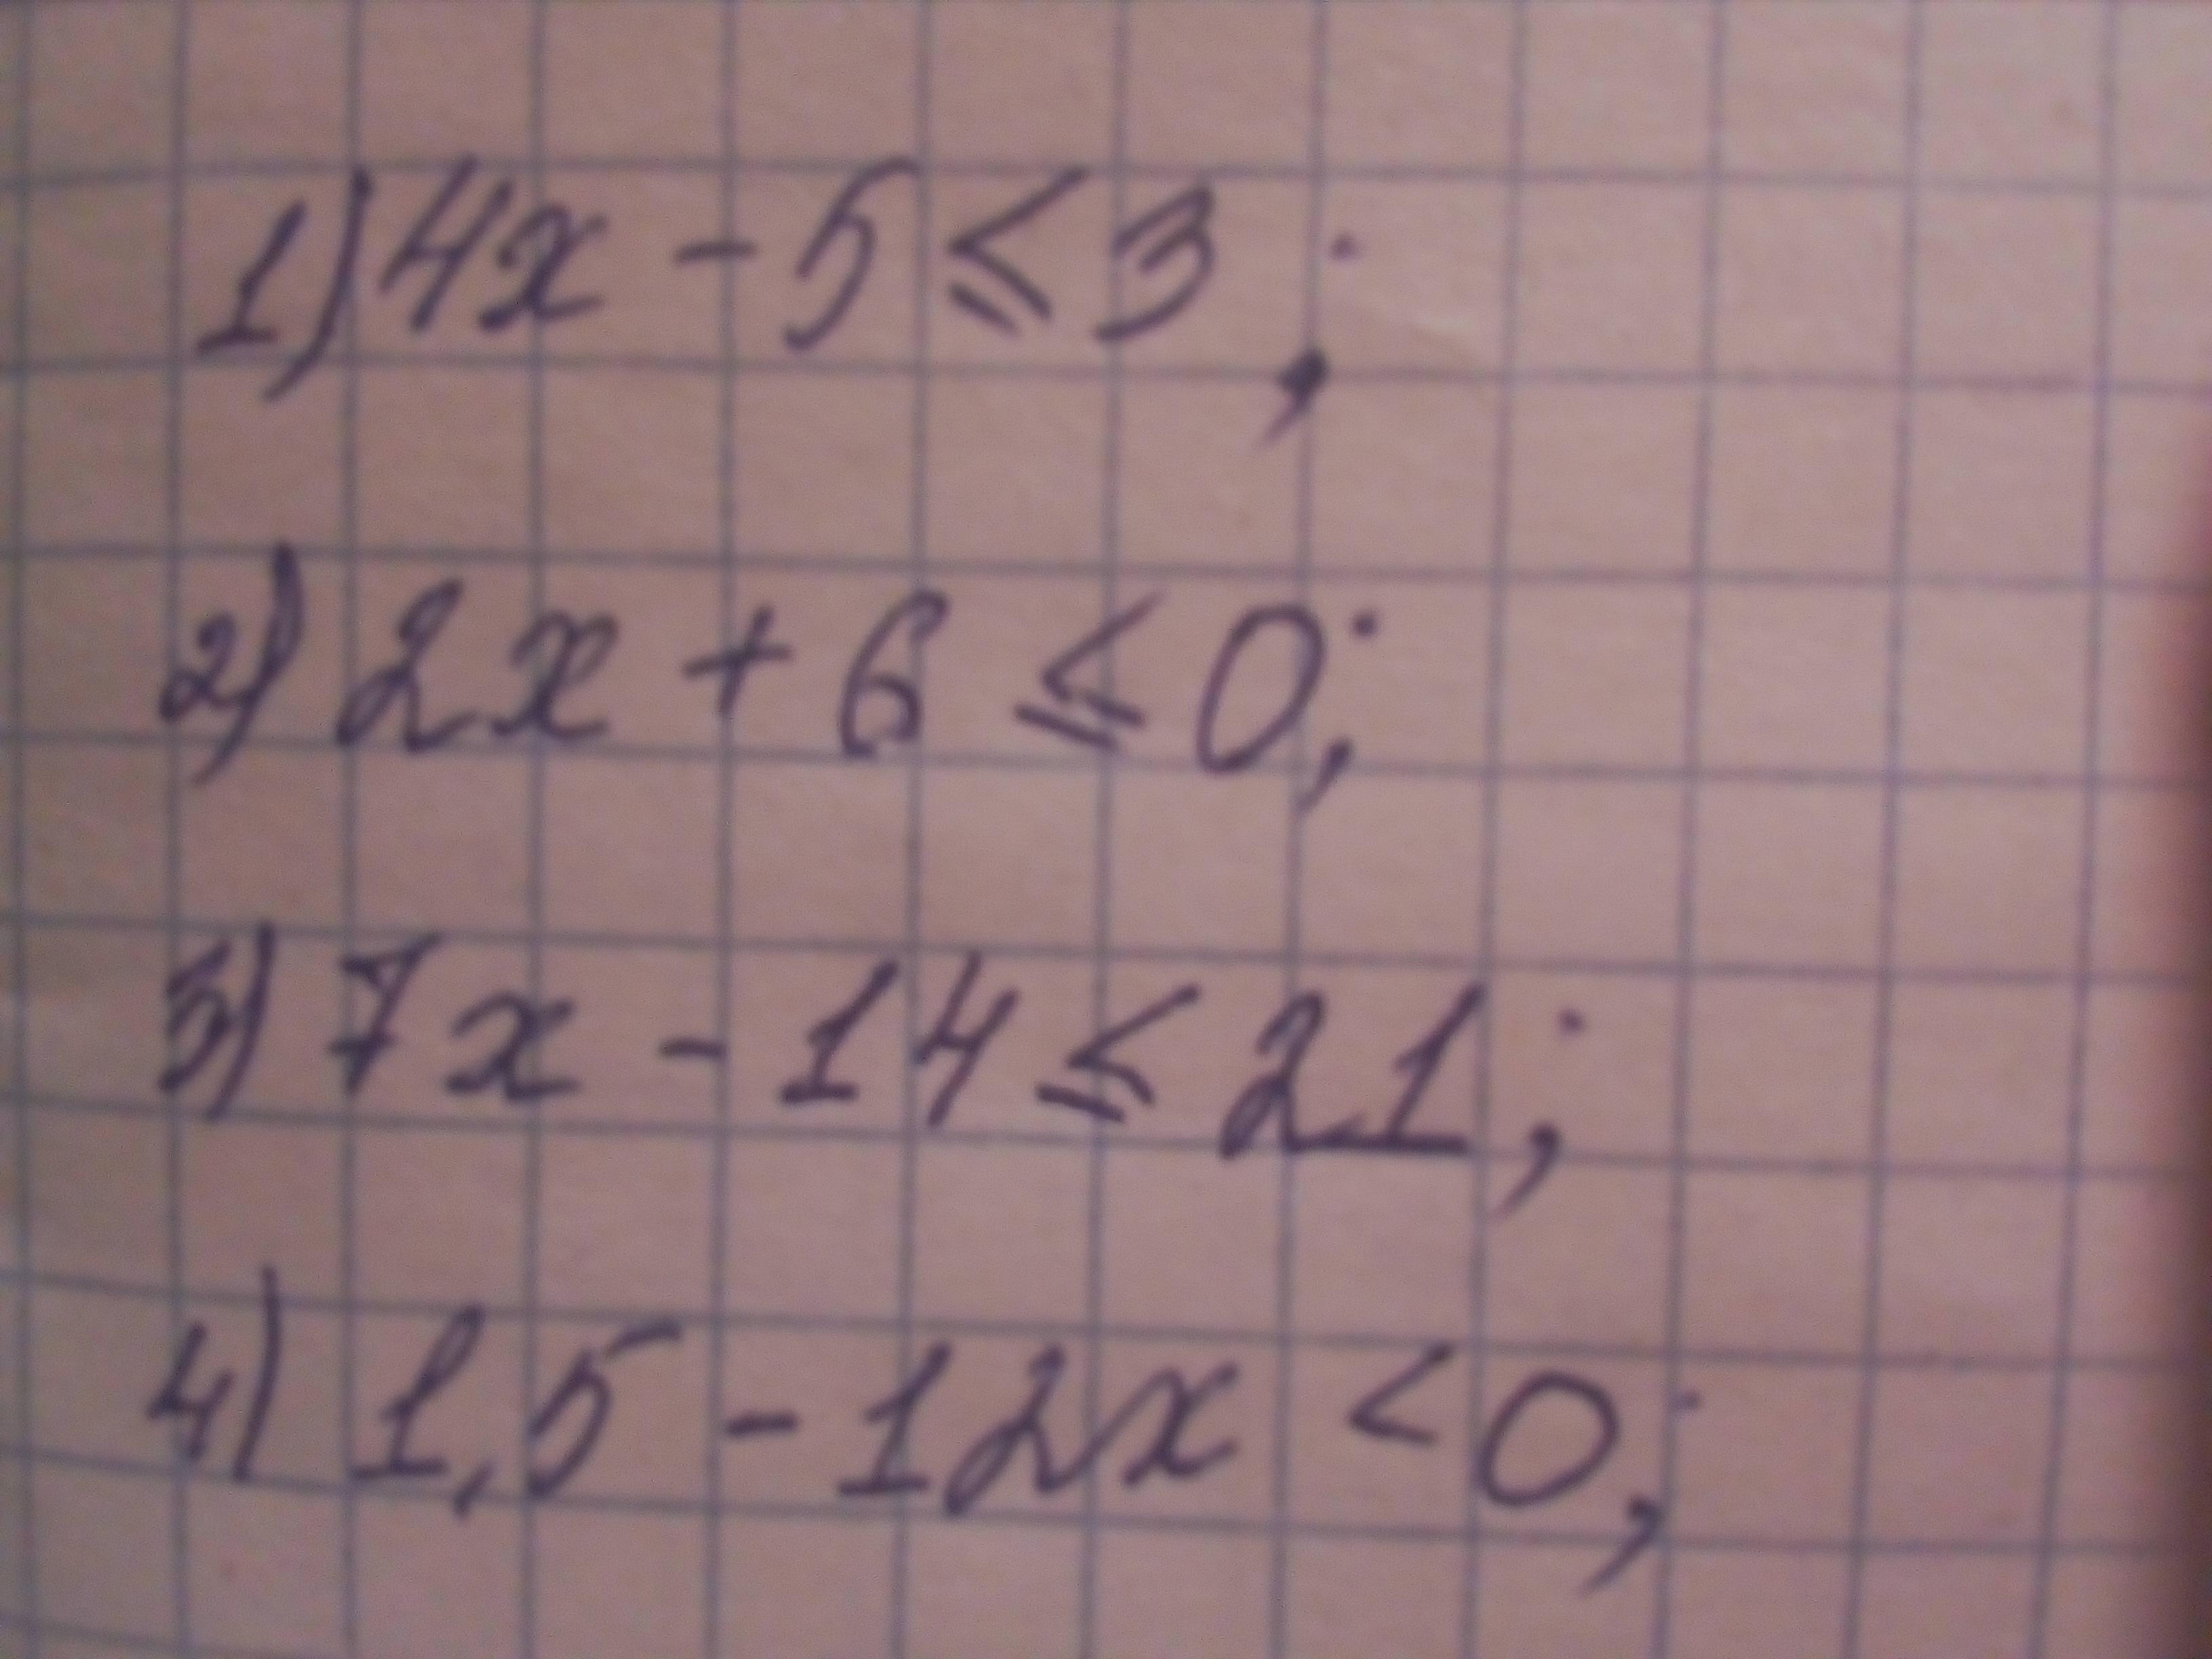 1) 4x - 5 ≤ 3;
2) 2x + 6 ≤ 0;
3) 7x - 14 ≤ 21;
4) 1,5 - 12x < 0;